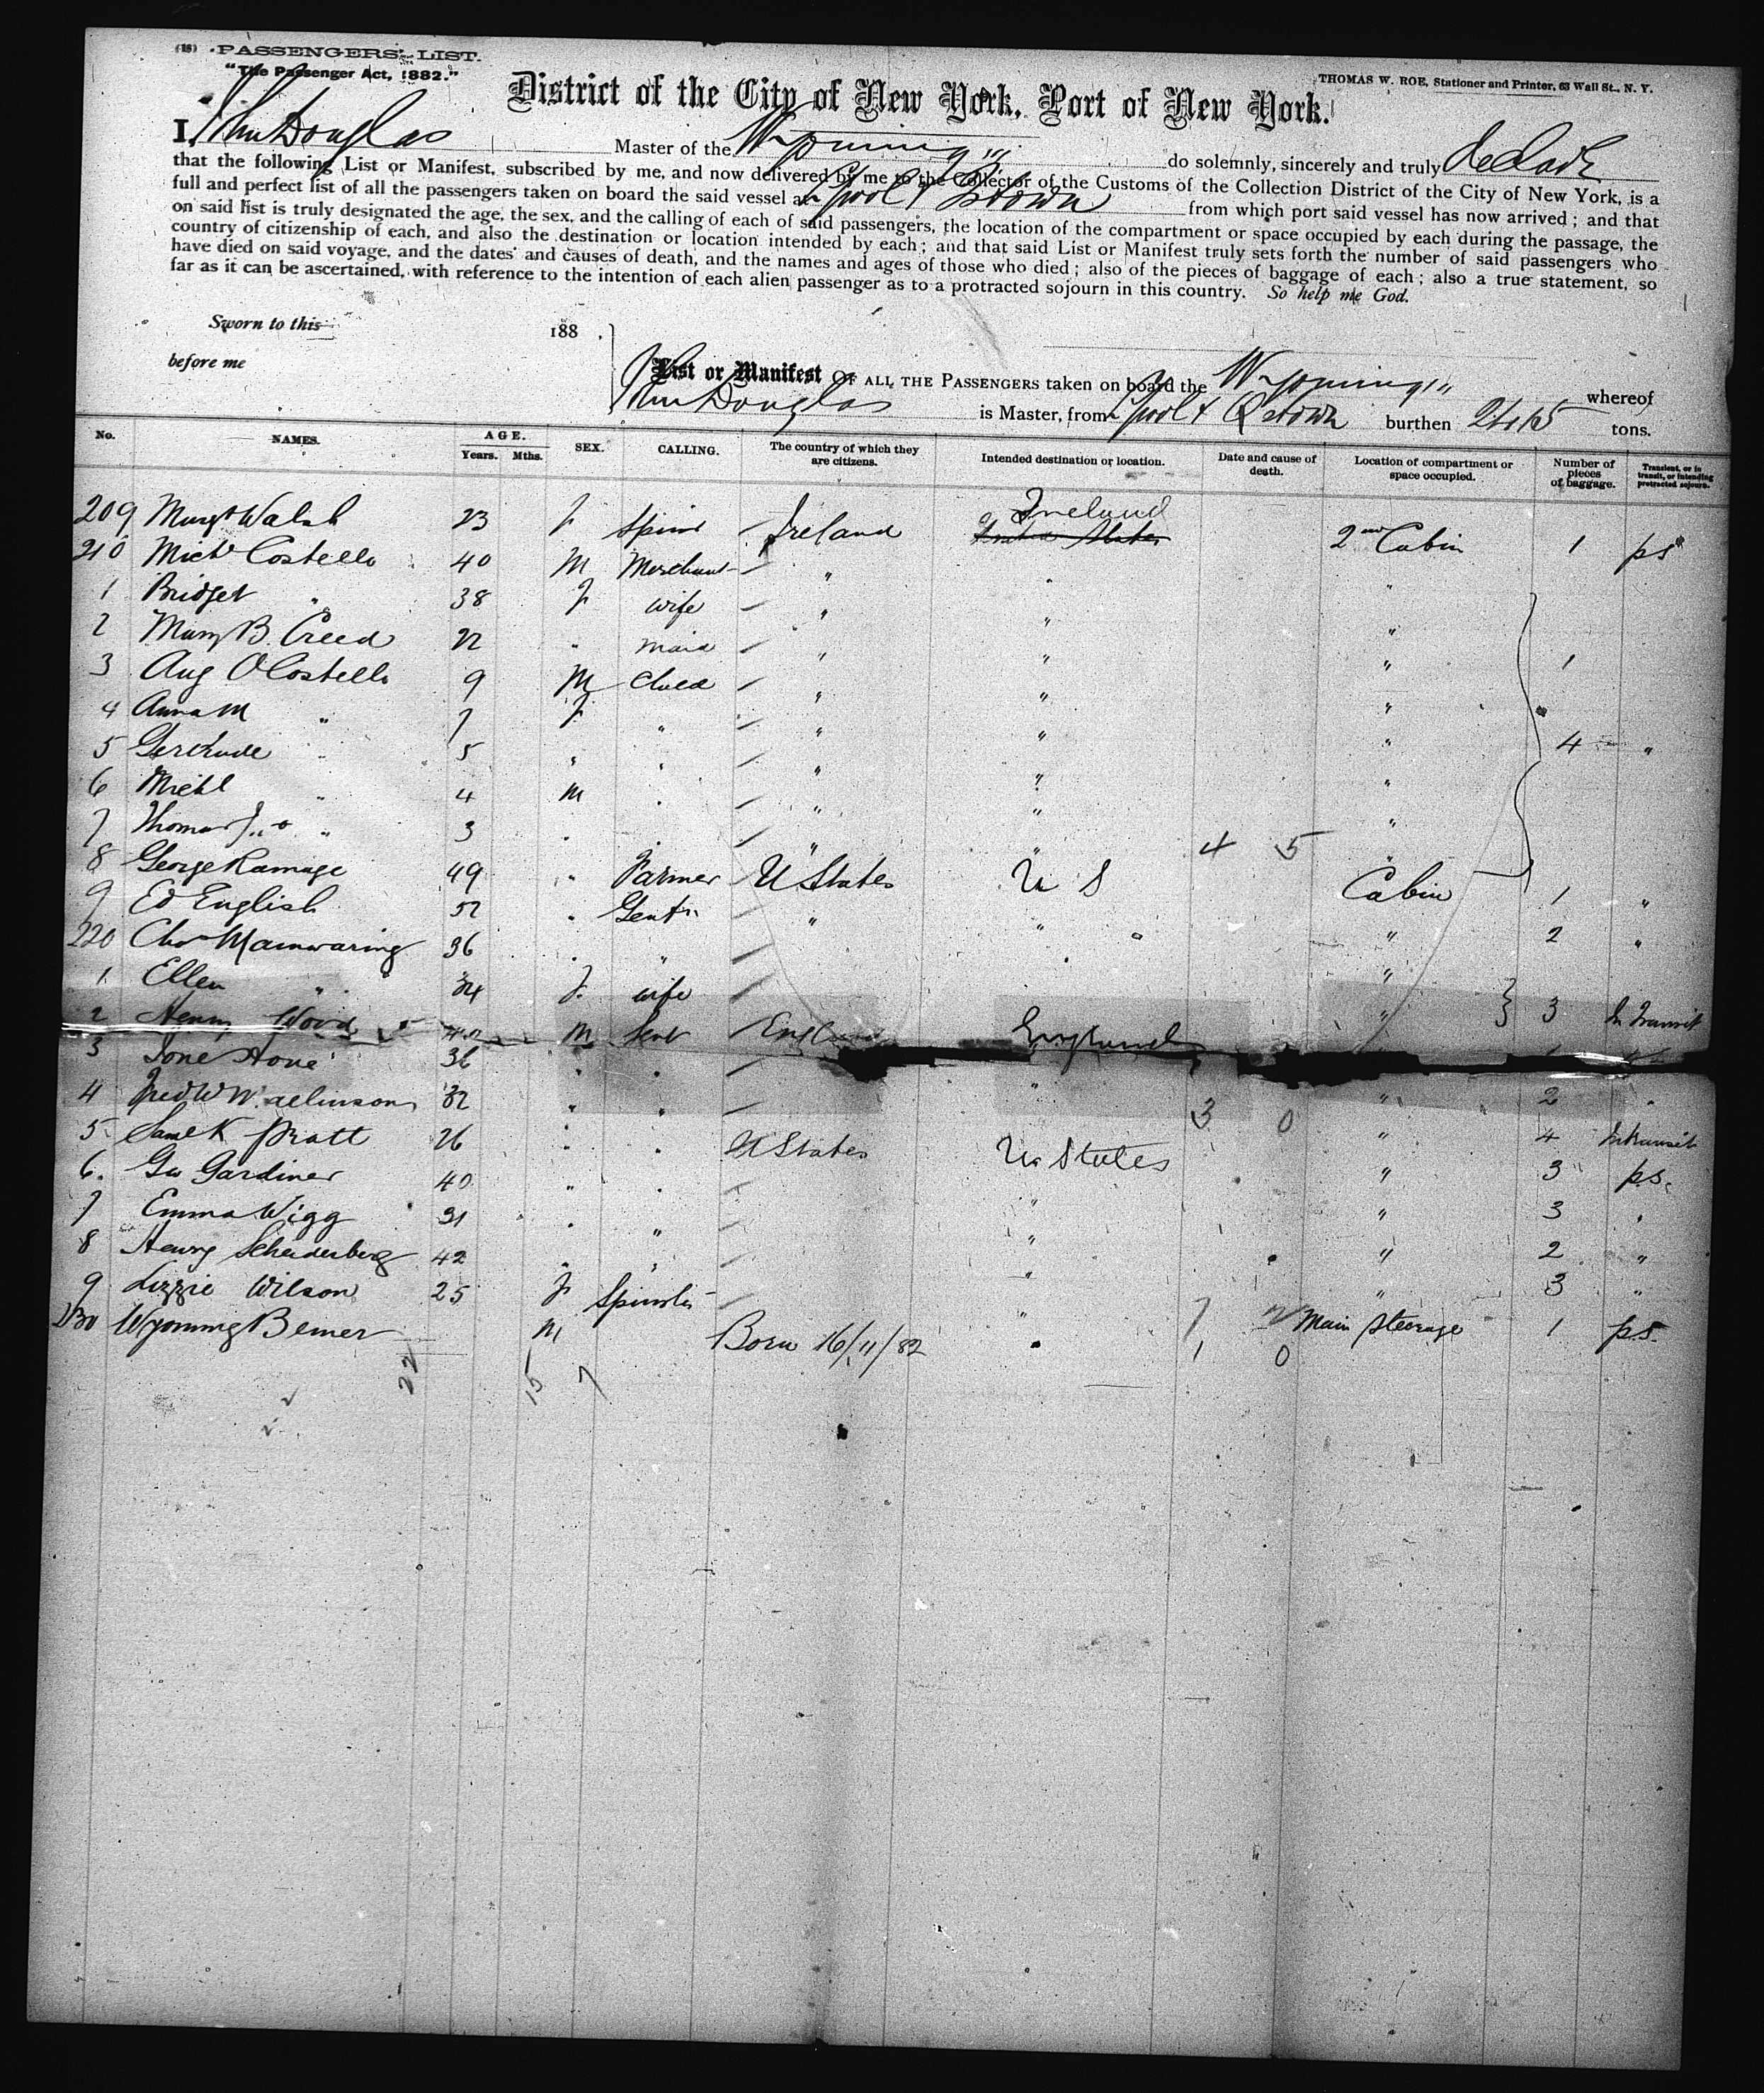 (18) PASSENGERS' LIST.
"The Passenger Act, 1882."
THOMAS W. ROE, Stationer and Printer, 63 Wall St., N. Y.
District of the City of New York, Port of New York.
I, Jno Douglas Master of the Wyoming do solemnly, sincerely and truly declare
that the following List or Manifest, subscribed by me, and now delivered by me to the Collector of the Customs of the Collection District of the City of New York, is a
full and perfect list of all the passengers taken on board the said vessel at L'pool & Qstown from which port said vessel has now arrived; and that
on said list is truly designated the age, the sex, and the calling of each of said passengers, the location of the compartment or space occupied by each during the passage, the
country of citizenship of each, and also the destination or location intended by each; and that said List or Manifest truly sets forth the number of said passengers who
have died on said voyage, and the dates and causes of death, and the names and ages of those who died; also of the pieces of baggage of each; also a true statement, so
far as it can be ascertained, with reference to the intention of each alien passenger as to a protracted sojourn in this country. So help me God.
Sworn to this 188 .
before me
List or Manifest OF ALL THE PASSENGERS taken on board the Wyoming whereof
Jno Douglas is Master, from L'pool & Qstown burthen tons.
No. NAMES. AGE. Years. Mths. SEX. CALLING. The country of which they are citizens. Intended destination or location. Date and cause of death. Location of compartment or space occupied. Number of pieces of baggage. Transient, or in transit, or intending protracted sojourn.
209 Margt Walsh 23 F Spinr Ireland Ireland United States 2nd Cabin 1 ps
210 Michl Costello 40 M Merchant " " "
1 Bridget " 38 F wife " " "
2 Mary B. Creed 22 " maid " " " 1
3 Aug O Costello 9 M Child " " "
4 Anna M " 7 F " " " "
5 Gertrude " 5 " " " " " 4 "
6 Michl " 4 M " " " "
7 Thomas J. " 3 " " " " "
4 5
8 George Ramage 49 " Farmer U States U S Cabin 1 "
9 Ed English 52 " Gentn " " " 2 "
220 Chas Mainwaring 36 " " " "
1 Ellen " 34 F. wife " 3 In Transit
2 Henry Wood M Gent England England
3 36 " "
4 Fred W 32 " " " " 2 "
3 0
5 Saml K Pratt 26 " " U States U. States " 4 In transit
6. Geo Gardiner 40 " " " " 3 ps.
7 Emma Wigg 31 " " " " 3 "
8 Henry Scheiderberg 42 " " " " 2 "
9 Lizzie Wilson 25 F Spinster " " 3 "
7 2
230 Wyoming Bemer M Born 16/11/82 " Main Steerage 1 ps.
1 0
22 15 7